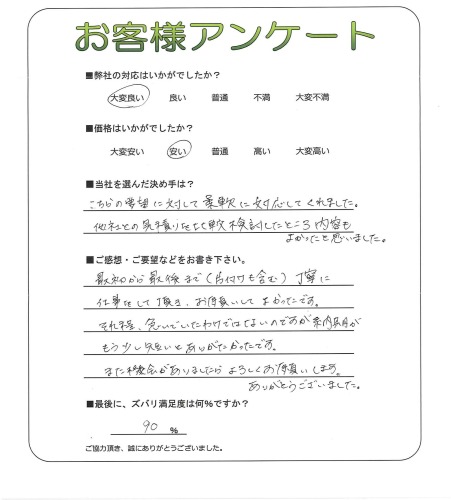 お客様アンケート
■弊社の対応はいかがでしたか?
大変良い 良い 普通 不満 大変不満
■価格はいかがでしたか?
大変安い 安い 普通 高い 大変高い
■当社を選んだ決め手は?
こちらの希望に対して柔軟に対応してくれました。
他社との見積りをして比較検討したところ内容も
よかったと思いました。
■ご感想・ご要望などをお書き下さい。
最初から最後まで(片付けも含む)丁寧に
仕事をして頂き、お願いしてよかったです。
それ程、急いでいたわけではないのですが案内
もう少し早いとありがたかったです。
また機会がありましたらよろしくお願いします。
ありがとうございました。
■最後に、ズバリ満足度は何%ですか?
90 %
ご協力頂き、誠にありがとうございました。